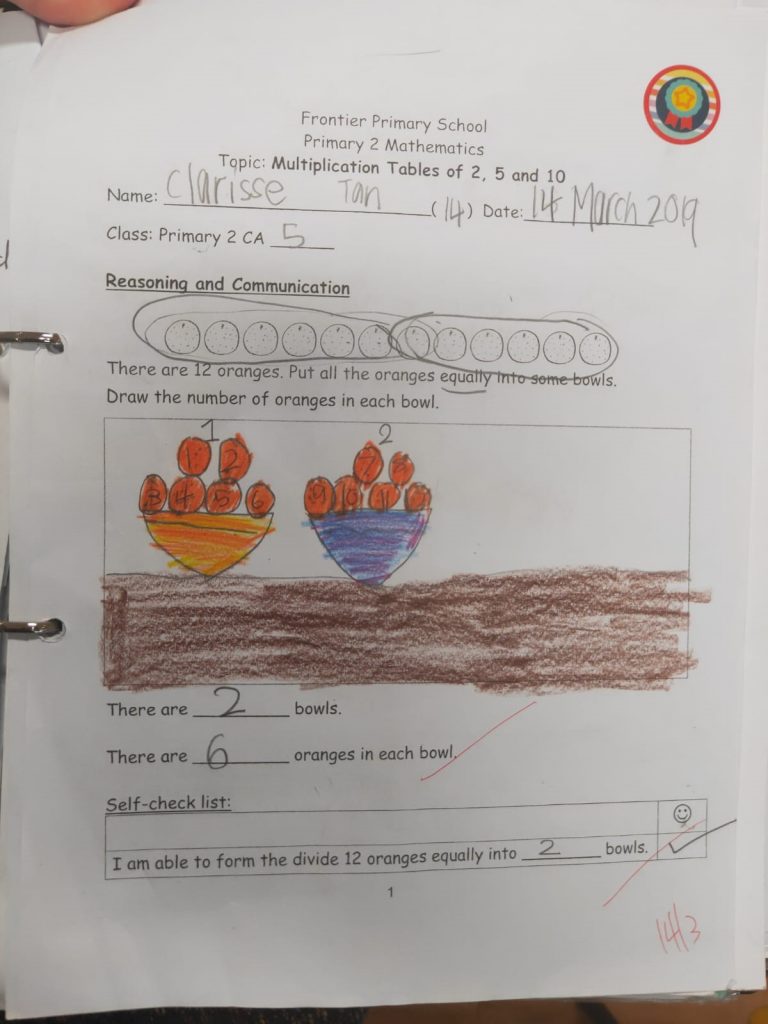 Frontier Primary School
Primary 2 Mathematics
Topic: Multiplication Tables of 2, 5 and 10
Name: Clarisse Tan (14) Date: 14 March 2019
Class: Primary 2 CA 5
Reasoning and Communication
There are 12 oranges. Put all the oranges equally into some bowls.
Draw the number of oranges in each bowl.
1 2
1 2 7 8
3 4 5 6 9 10 11
There are 2 bowls.
There are 6 oranges in each bowl.
Self-check list:
I am able to form the divide 12 oranges equally into 2 bowls.
1
14/3